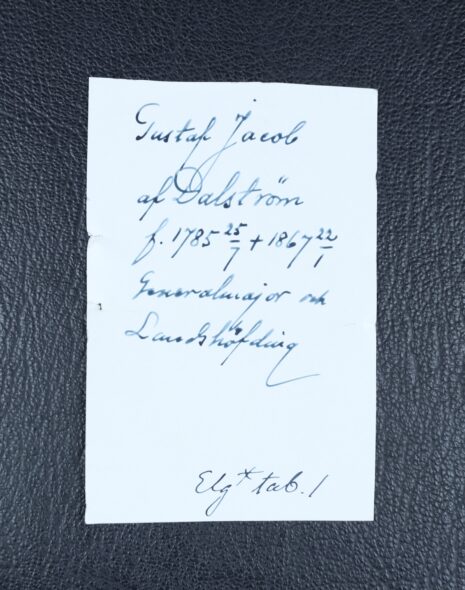 Gustaf Jacob
af Dalström
f. 1785 25/7 + 1867 22/1
Generalmajor och
Landshöfding
Elg* tab. 1